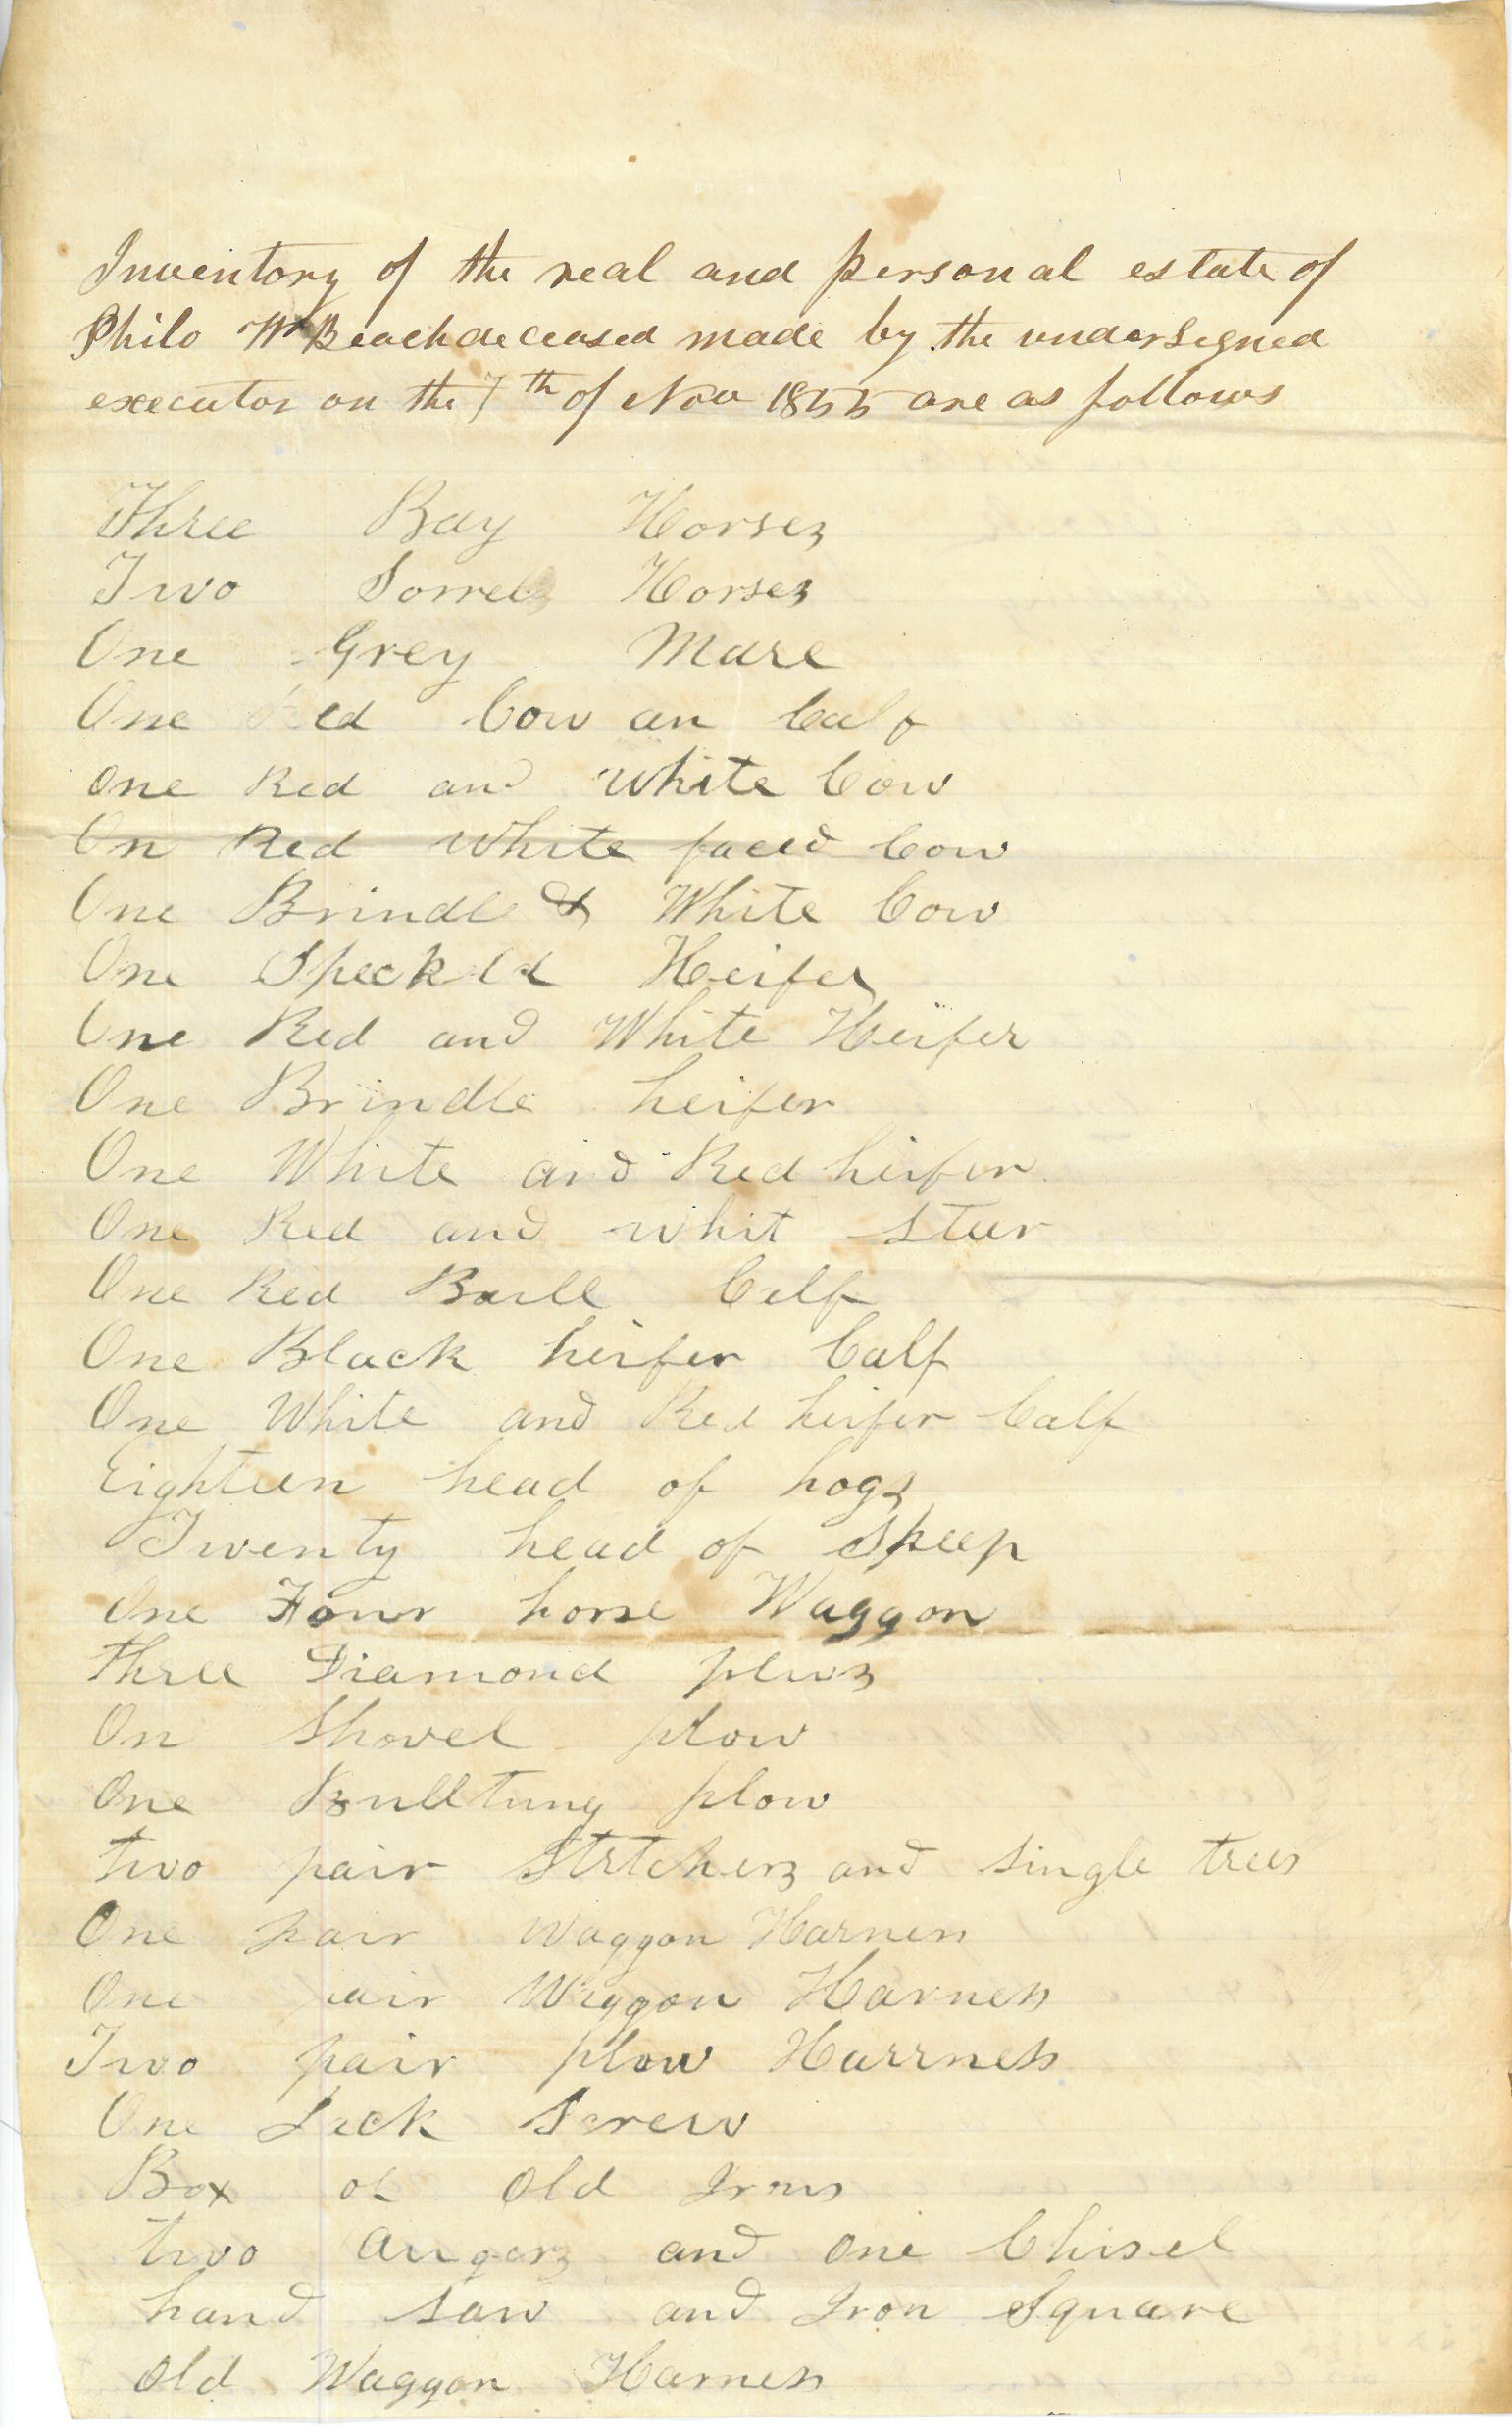 Inventory of the real and personal estate of
Philo W Beach deceased made by the undersigned
executor on the 7th of Nov 1855 are as follows
Three Bay Horses
Two Sorrel Horses
One Grey Mare
One Red Cow an Calf
One Red and White Cow
On Red White faced Cow
One Brindle & White Cow
One Speckld Heifer
One Red and White Heifer
One Brindle heifer
One White and Red heifer
One Red and whit steer
One Red Bull Calf
One Black heifer Calf
One White and Red heifer Calf
Eighteen head of hogs
Twenty head of Sheep
One Four horse Waggon
three Diamond plws
On Shovel plow
One Bulltung plow
two pair Strtchers and single trees
One pair Waggon Harness
One pair Waggon Harness
Two pair plow Harrness
One Jack Screw
Box of Old Irons
two Augers and one Chisel
hand saw and Iron Square
Old Waggon Harness